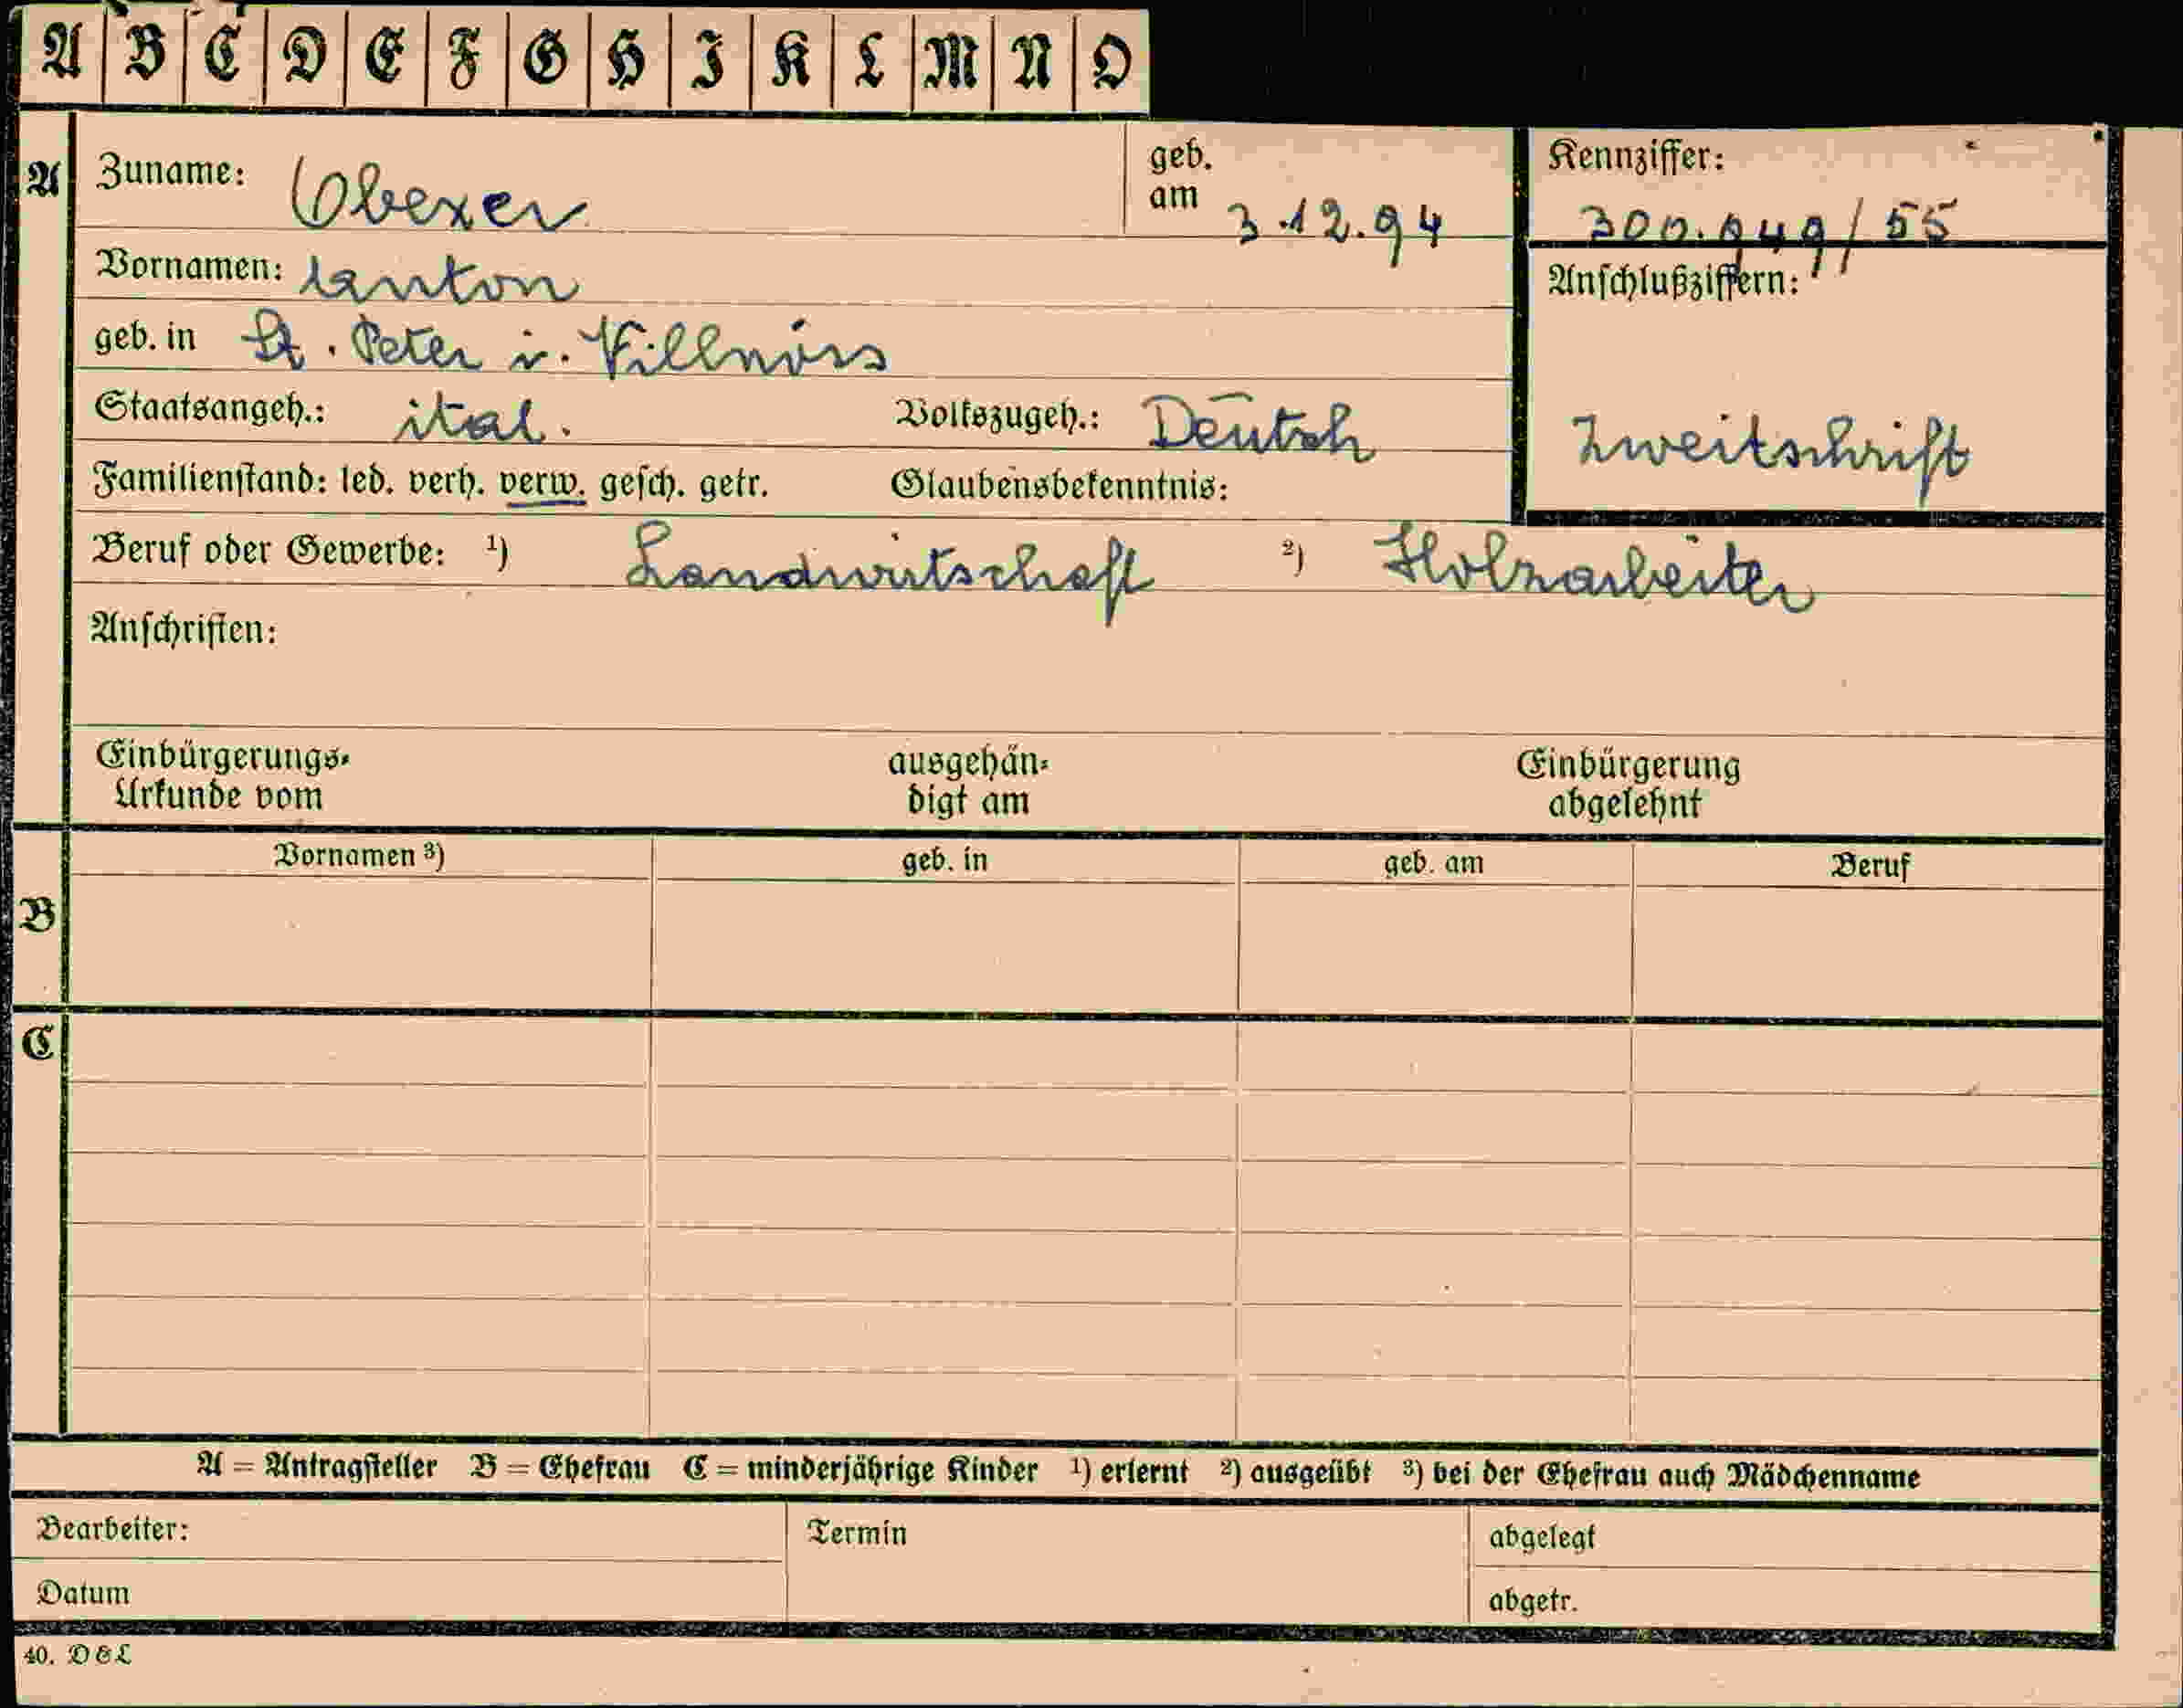 A B C D E F G H I K L M N O
A Zuname: Obexer geb. am 3.12.94 Kennziffer: 300.949/55
Vornamen: Anton Anschlußziffern:
geb. in St. Peter i. Villnöss
Staatsangeh.: ital. Volkszugeh.: Deutsch Zweitschrift
Familienstand: led. verh. verw. gesch. getr. Glaubensbekenntnis:
Beruf oder Gewerbe: ¹) Landwirtschaft ²) Holzarbeiter
Anschriften:
Einbürgerungs- ausgehän- Einbürgerung
Urkunde vom digt am abgelehnt
Vornamen ³) geb. in geb. am Beruf
B
C
A = Antragsteller B = Ehefrau C = minderjährige Kinder ¹) erlernt ²) ausgeübt ³) bei der Ehefrau auch Mädchenname
Bearbeiter: Termin abgelegt
Datum abgetr.
40. D & L